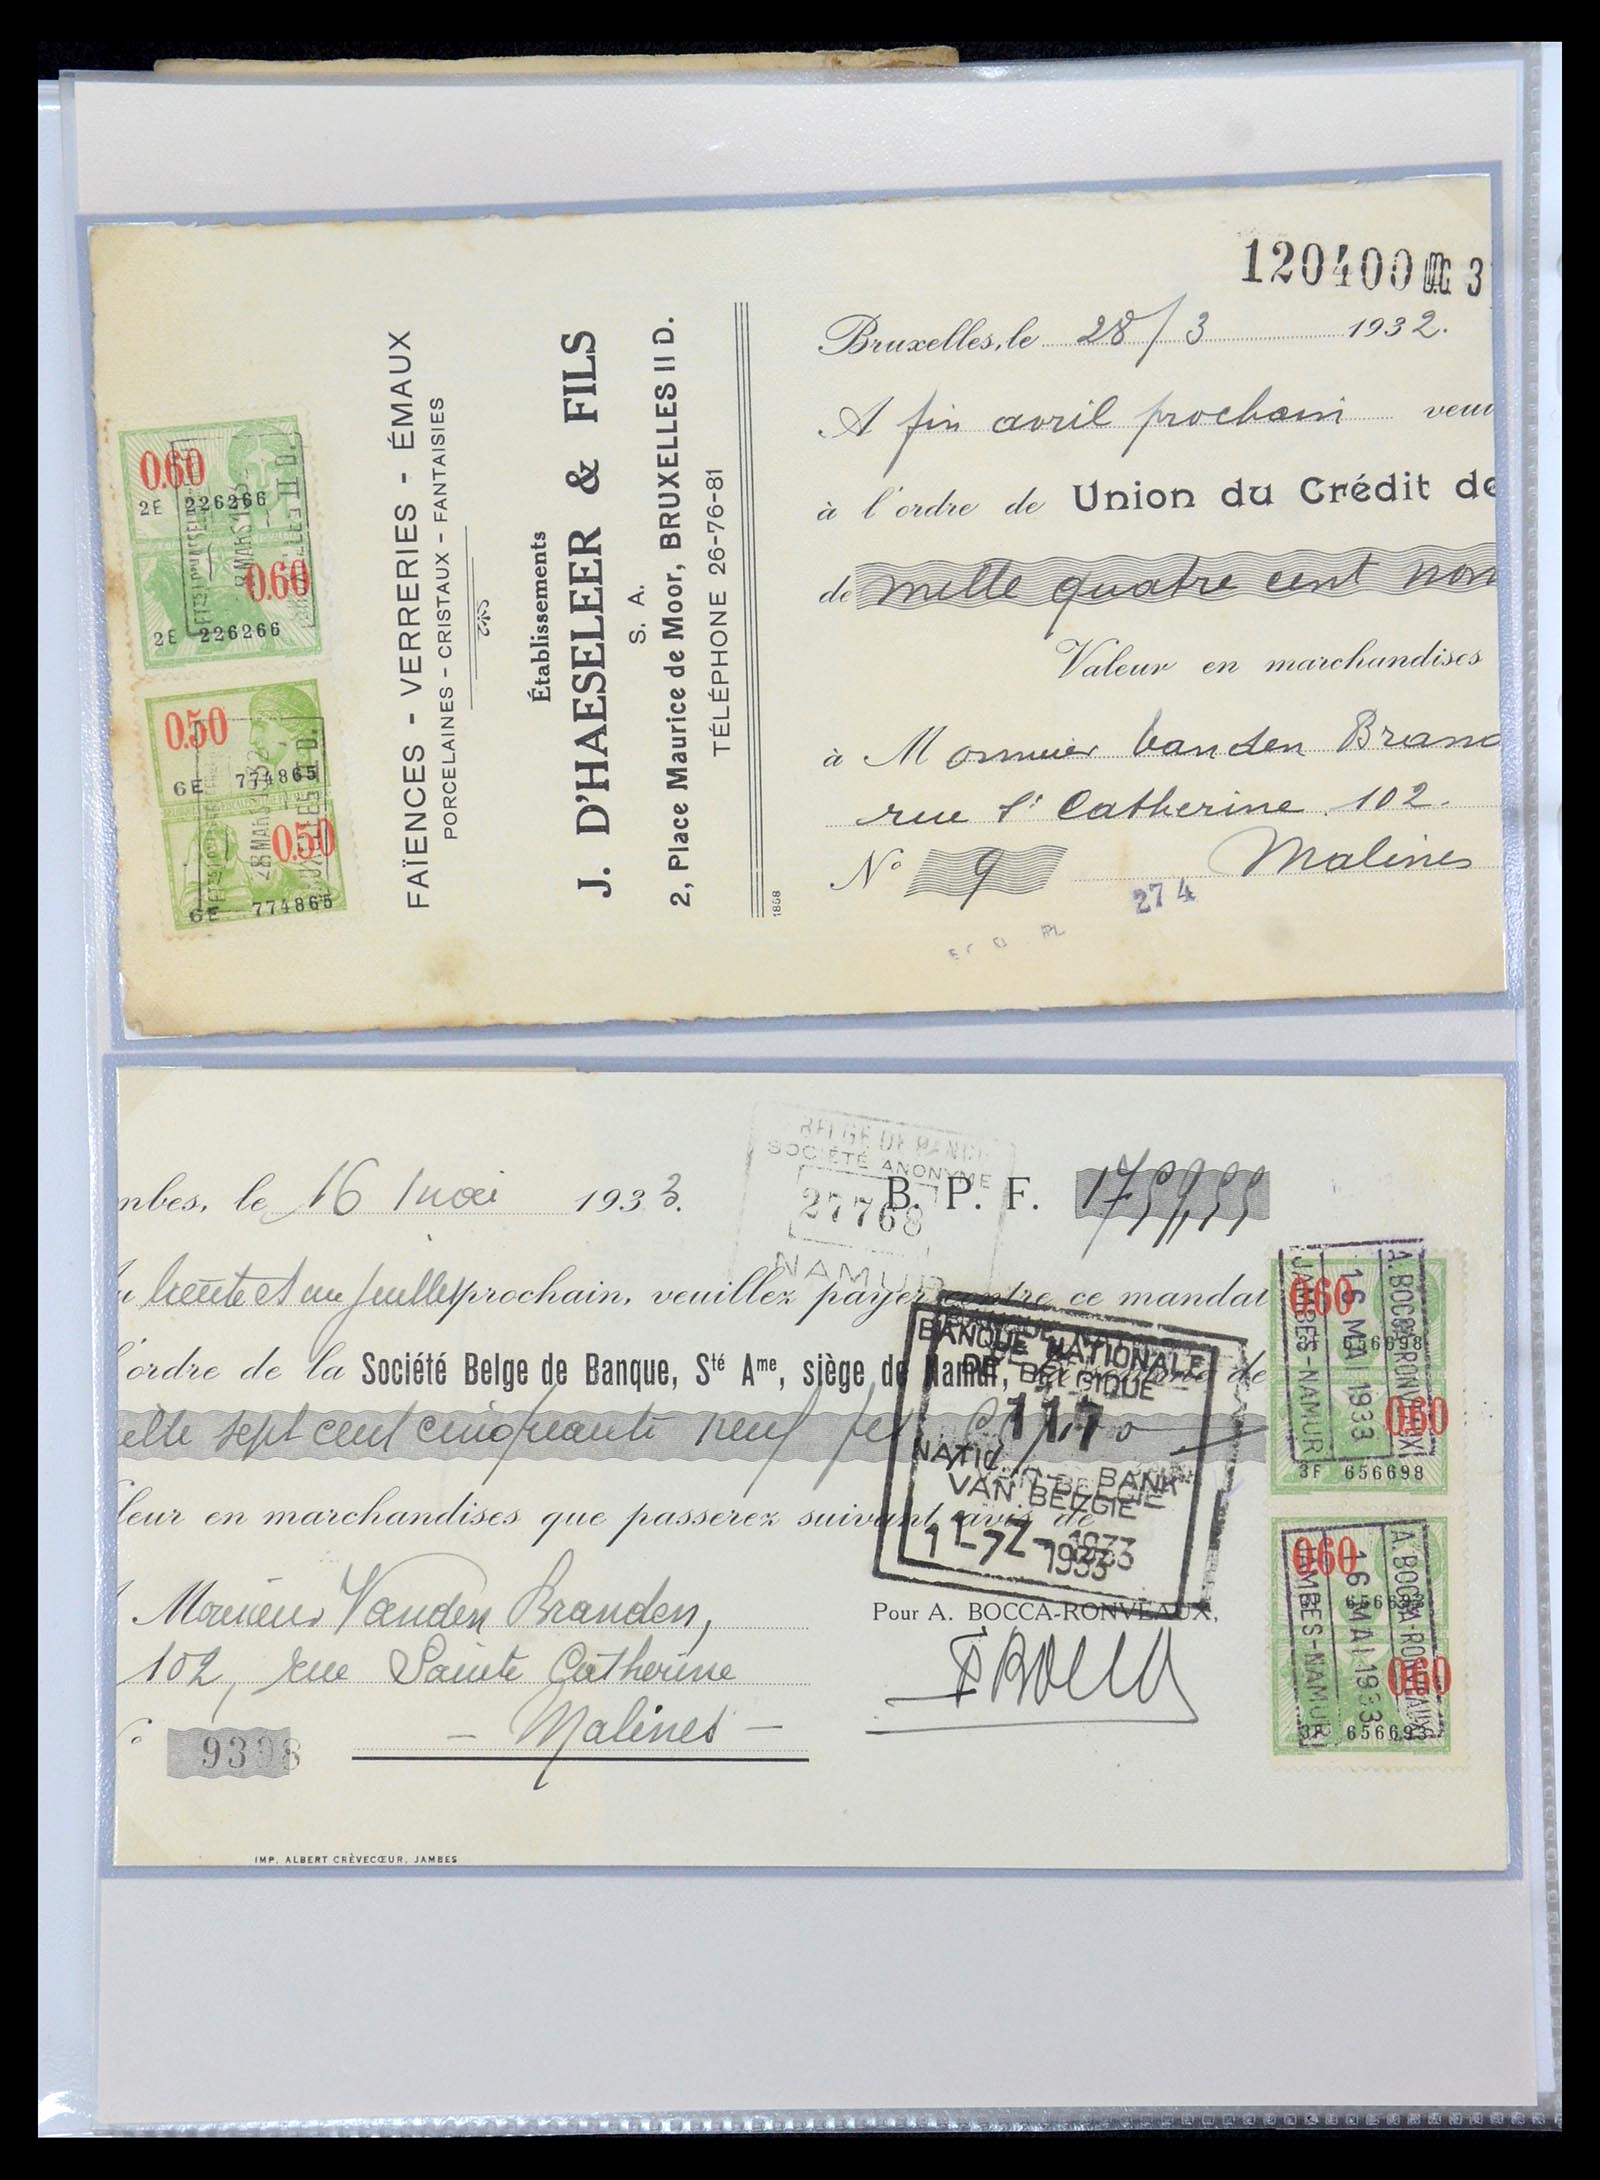 120400 U.C. 3
Bruxelles, le 28/3 1932.
A fin avril prochain veui
à l'ordre de Union du Crédit de
de mille quatre cent non
Valeur en marchandises
à Monsieur Vanden Brand
rue Ste Catherine 102.
No 9 Malines
274
FAÏENCES - VERRERIES - ÉMAUX
PORCELAINES - CRISTAUX - FANTAISIES
Établissements
J. D'HAESELEER & FILS
S. A.
2, Place Maurice de Moor, BRUXELLES II D.
TÉLÉPHONE 26-76-81
1868
0.60
2E 226266
0.60
2E 226266
0.50
6E 774865
0.50
6E 774865
BELGE DE BANQUE
SOCIÉTÉ ANONYME
27768
NAMUR
mbes, le 16 mai 1933.
B. P. F. 1759,55
trente et un Juillet prochain, veuillez payer contre ce mandat
l'ordre de la Société Belge de Banque, Sté Ame, siège de Namur, de
elle sept cent cinquante neuf
leur en marchandises que passerez suivant avis de
Monsieur Vanden Branden,
102, rue Sainte Catherine
- Malines -
9398
BANQUE NATIONALE
DE BELGIQUE
117
BANK
VAN BELGIE
1933
Pour A. BOCCA-RONVEAUX,
IMP. ALBERT CRÈVECŒUR, JAMBES
A. BOCCA-RONVEAUX
16 MAI 1933
JAMBES-NAMUR
0.60
656698
0.60
3F 656698
A. BOCCA-RONVEAUX
16 MAI 1933
JAMBES-NAMUR
0.60
0.60
3F 656693